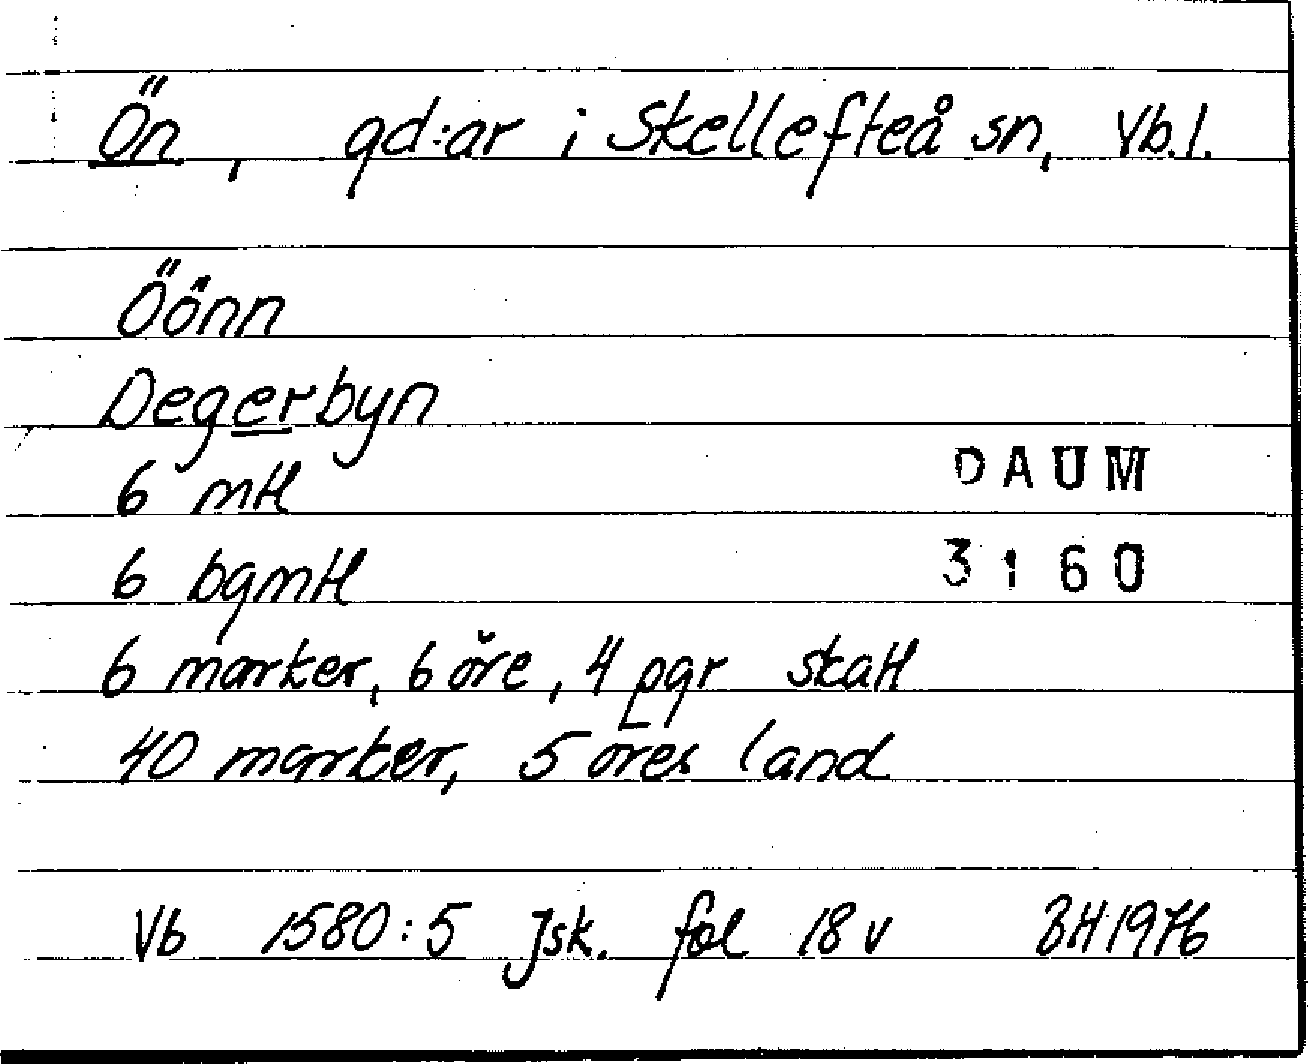 Ön, gd:ar i Skellefteå sn, Vb.l.
Öönn
Degerbyn
6 mtl
6 bgmtl
DAUM
3160
6 marker, 6 öre, 4 pgr skatt
40 marker, 5 öres land
Vb 1580:5 Jsk. fol 18 v BH 1976